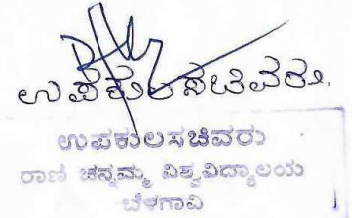 ಉಪಕುಲಸಚಿವರು.
ಉಪಕುಲಸಚಿವರು
ರಾಣಿ ಚನ್ನಮ್ಮ ವಿಶ್ವವಿದ್ಯಾಲಯ
ಬೆಳಗಾವಿ